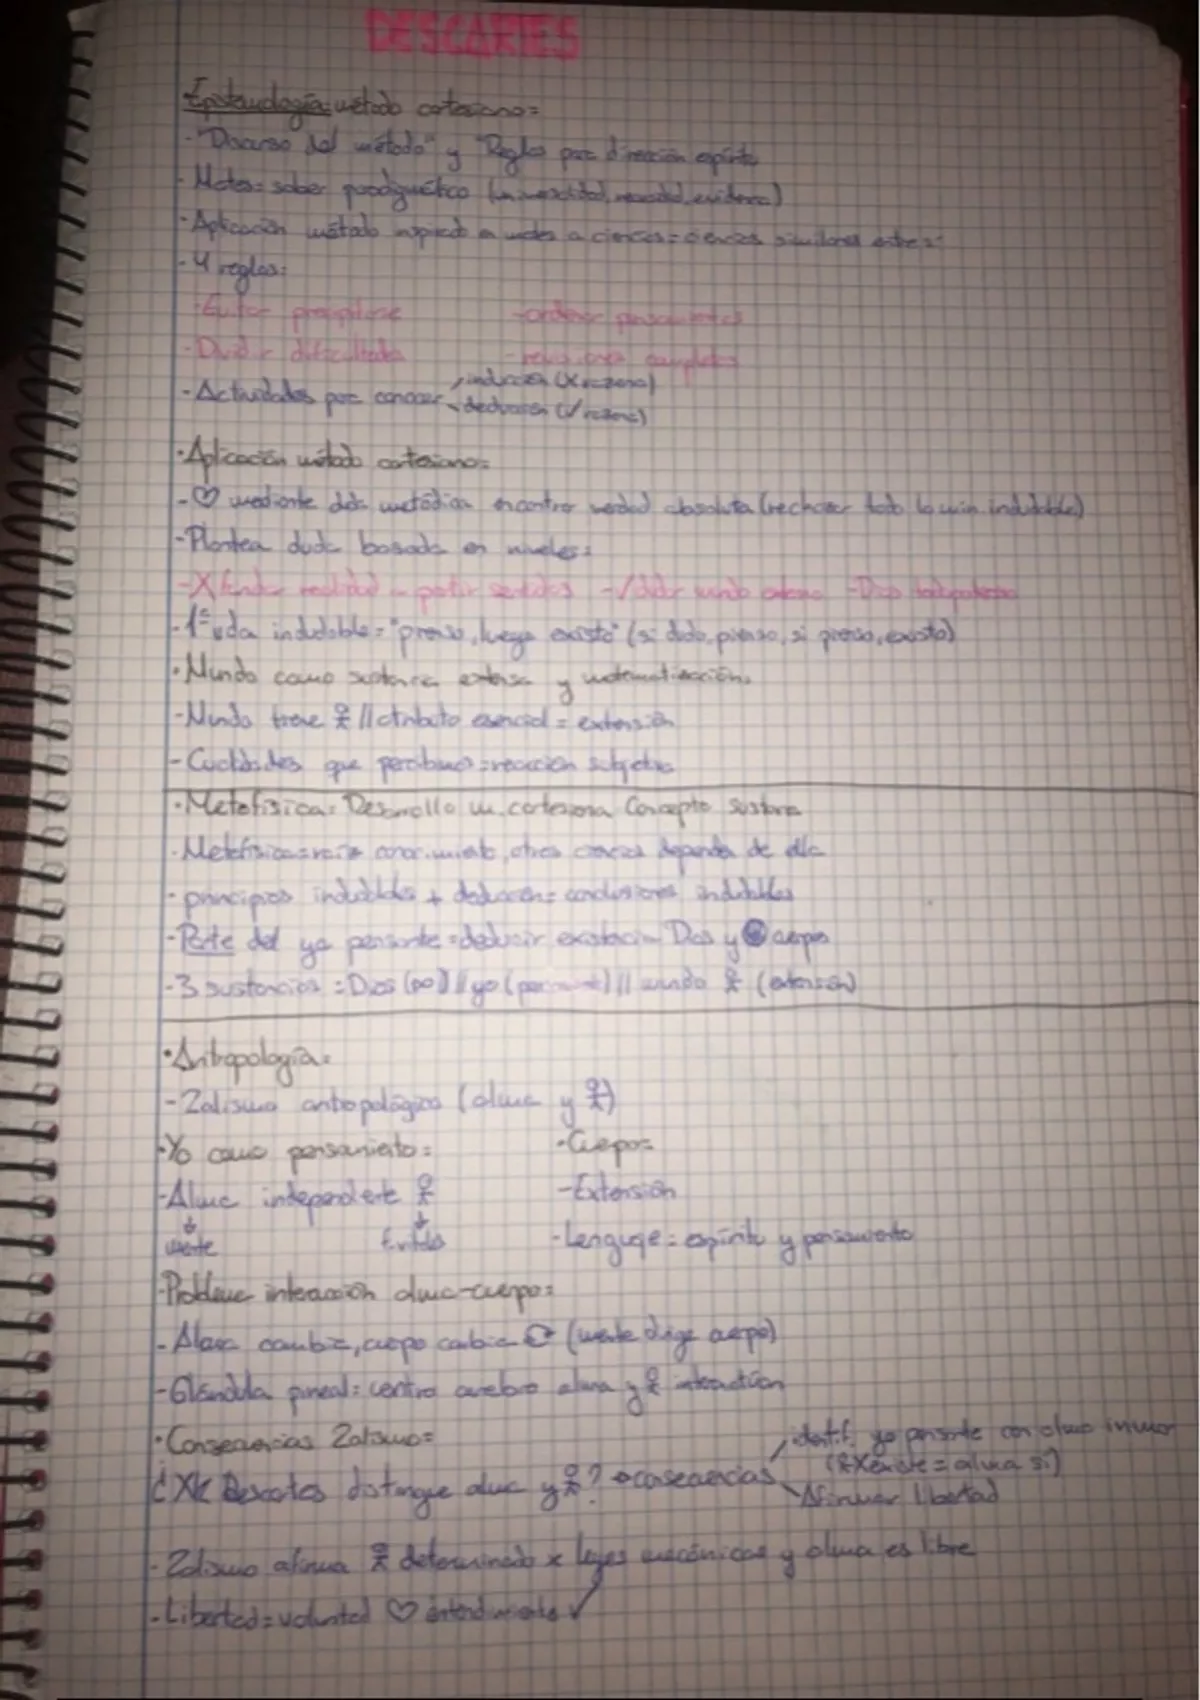 DESCARTES
Epistemología: método cartesiano=
-"Discurso del método" y "Reglas para dirección espíritu
- Metas= saber paradigmático (universalidad, necesidad, evidencia)
- Aplicación método inspirado en mates a ciencias = ciencias similares entre sí
- 4 reglas:
- Evitar precipitarse -ordenar pensamientos
- Dividir dificultades - revisiones completas
- Actividades para conocer inducción (X razona)
deducción (✓ razona)
· Aplicación método cartesiano=
- ♡ mediante duda metódica encontrar verdad absoluta (rechazar todo lo min. indudable)
- Plantea duda basada en niveles:
-X fundar realidad a partir sentidos -✓ dudar mundo externo - Dios todopoderoso
- 1ª vda indudable = "pienso, luego existo" (si dudo, pienso, si pienso, existo)
· Mundo como sustancia extensa y matematización.
- Mundo tiene // atributo esencial = extensión
- Cualidades que percibimos = reacción subjetiva
· Metafísica: Desarrollo m. cartesiana Concepto sustancia
- Metafísica = raíz conocimiento, otras ciencias dependen de ella
- principios indudables + deducción = conclusiones indudables
- Parte del yo pensante = deducir existencia Dios y cuerpo
- 3 sustancias = Dios (∞) // yo (pensante) // mundo (extensión)
· Antropología=
- 2alismo antropológico (alma y )
· Yo como pensamiento= · Cuerpo=
- Alma independiente - Extensión
mente - Lenguaje = espíritu y pensamiento
· Problema interacción alma-cuerpo=
- Alma cambia, cuerpo cambia (mente dirige cuerpo)
- Glándula pineal: centro cerebro alma y interactúan
· Consecuencias 2alismo=
identif. yo pensante con alma inmor
¿Xk Descartes distingue alma y ? consecuencias (X existe = alma sí)
Afirmar libertad
- 2alismo afirma determinado x leyes mecánicas y alma es libre
- Libertad = voluntad ♡ entendimiento ✓